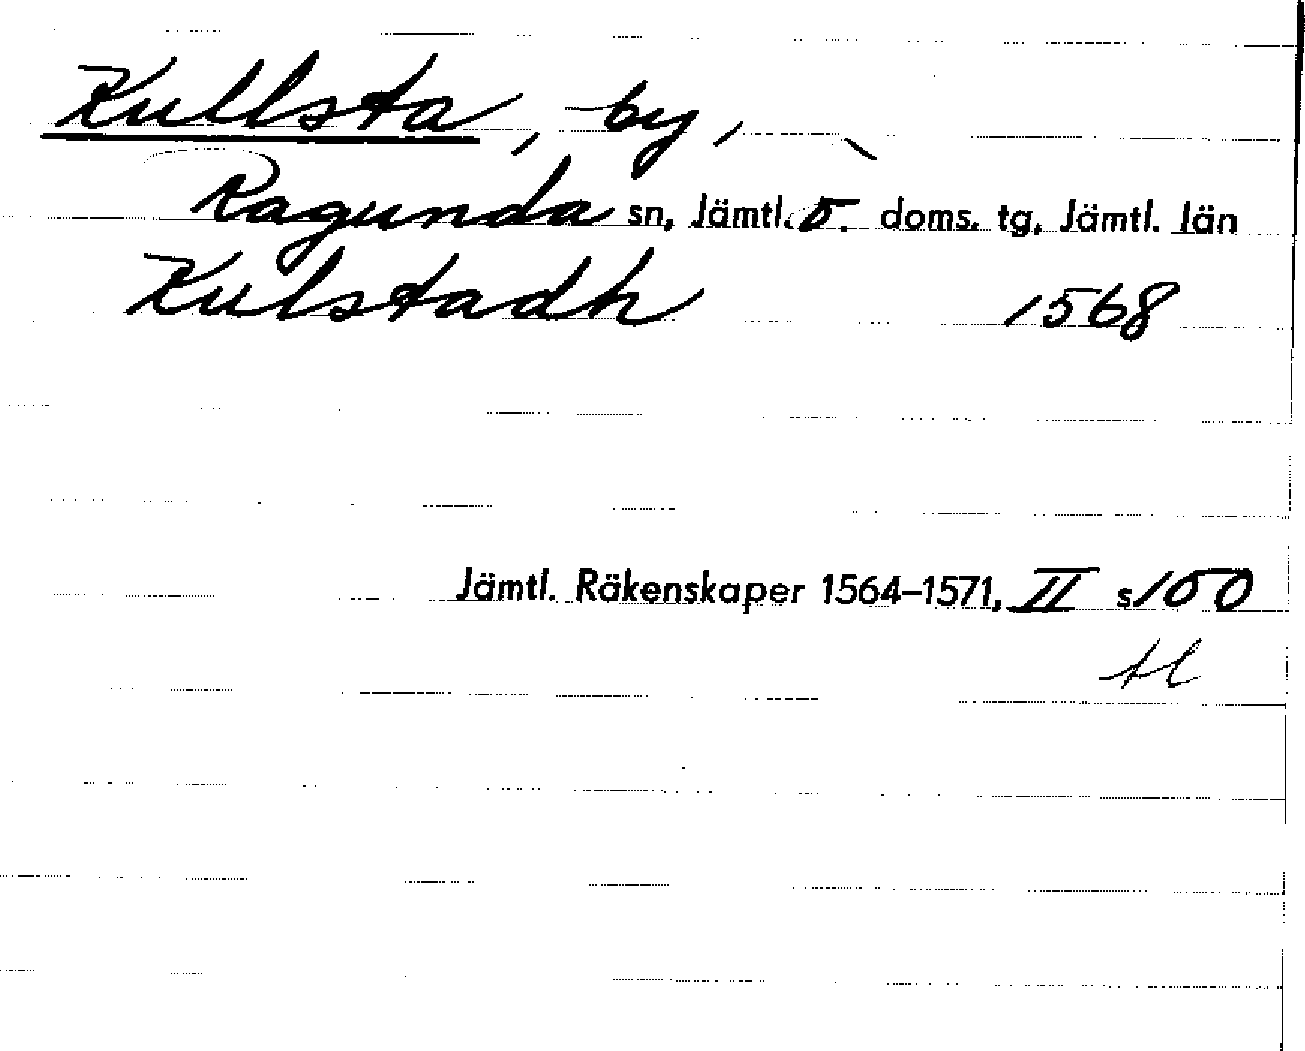 Kullsta, by,
Ragunda sn, Jämtl. ö. doms. tg, Jämtl. län
Kulstadh 1568
Jämtl. Räkenskaper 1564–1571, II s 100